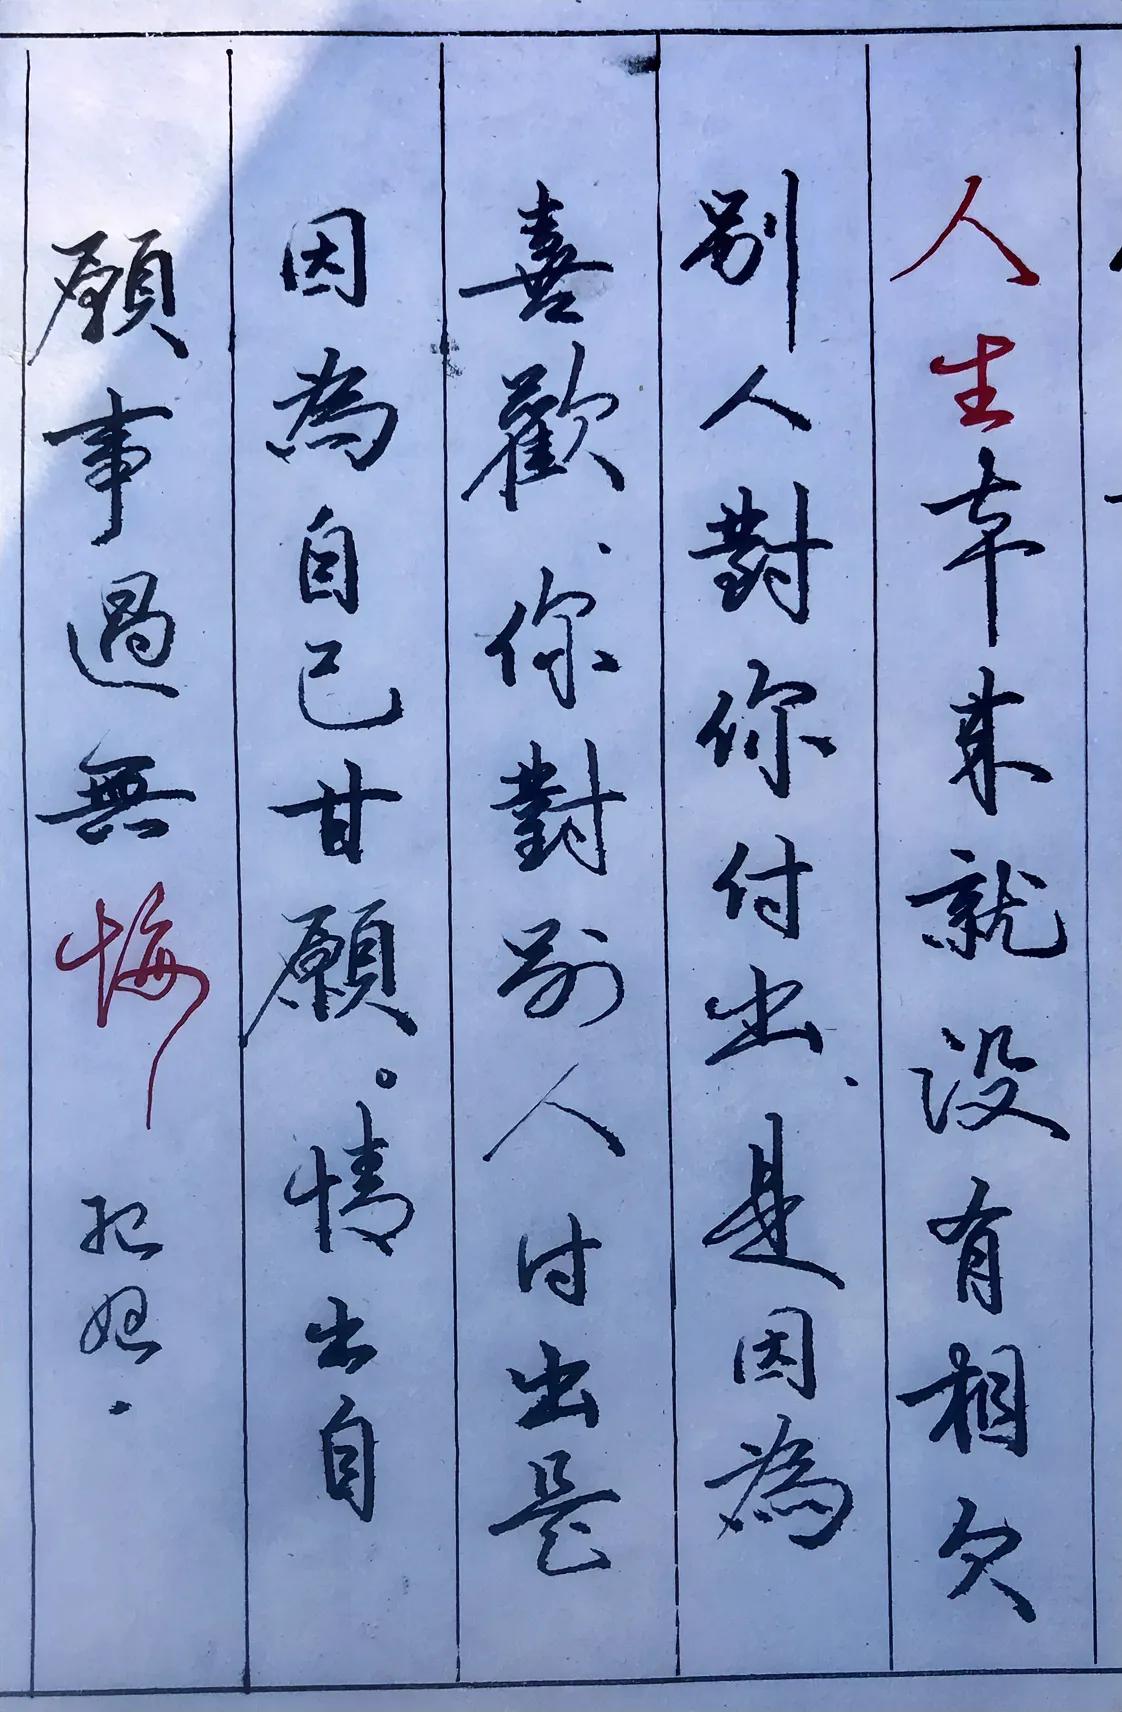 人生本来就没有相欠
别人對你付出、是因為
喜歡、你對别人付出是
因為自己甘願。情出自
願事過無悔